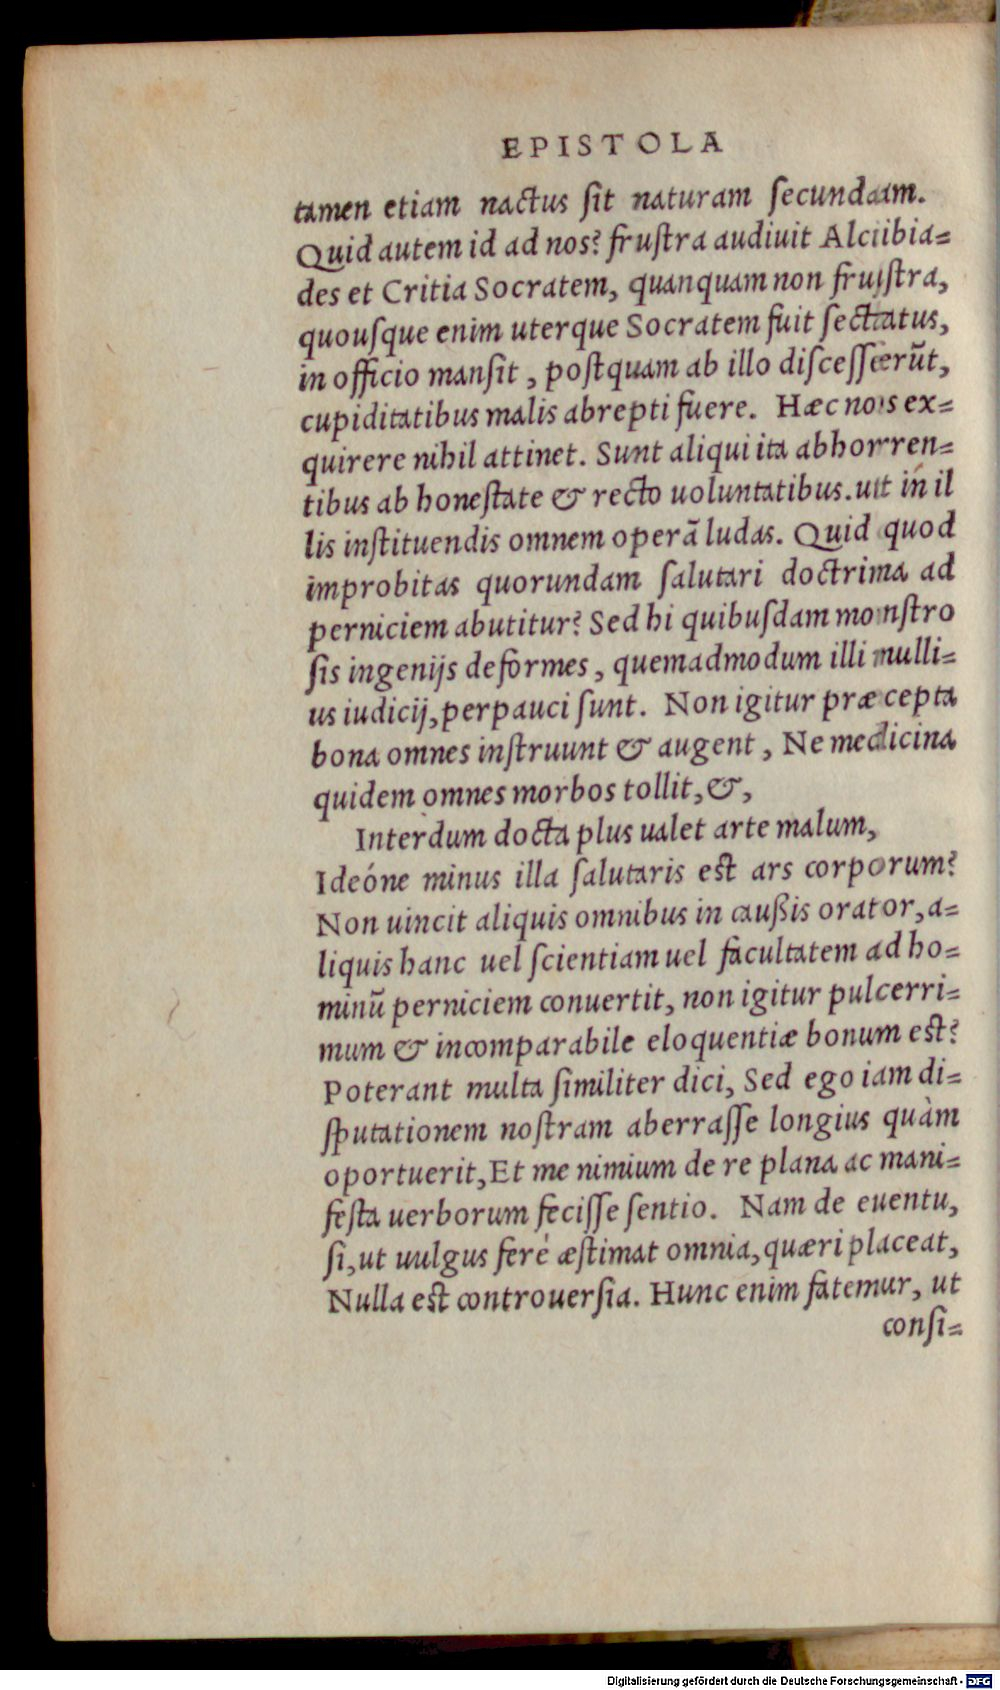 EPISTOLA
tamen etiam nactus ſit naturam ſecundam.
Quid autem id ad nos? fruſtra audiuit Alcibia=
des et Critia Socratem, quanquam non fruſtra,
quouſque enim uterque Socratem fuit ſectatus,
in officio manſit, poſtquam ab illo diſceſſerūt,
cupiditatibus malis abrepti fuere. Hæc nos ex=
quirere nihil attinet. Sunt aliqui ita abhorren=
tibus ab honeſtate & recto uoluntatibus.ut in il
lis inſtituendis omnem operā ludas. Quid quod
improbitas quorundam ſalutari doctrina ad
perniciem abutitur? Sed hi quibuſdam monſtro
ſis ingenijs deformes, quemadmodum illi nulli=
us iudicij,perpauci ſunt. Non igitur præcepta
bona omnes inſtruunt & augent, Ne medicina
quidem omnes morbos tollit,&,
Interdum docta plus ualet arte malum,
Ideóne minus illa ſalutaris eſt ars corporum?
Non uincit aliquis omnibus in caußis orator,a=
liquis hanc uel ſcientiam uel facultatem ad ho=
minū perniciem conuertit, non igitur pulcerri=
mum & incomparabile eloquentiæ bonum eſt?
Poterant multa ſimiliter dici, Sed ego iam di=
ſputationem noſtram aberraſſe longius quàm
oportuerit,Et me nimium de re plana ac mani=
feſta uerborum feciſſe ſentio. Nam de euentu,
ſi,ut uulgus feré æſtimat omnia,quæri placeat,
Nulla eſt controuerſia. Hunc enim fatemur, ut
conſi=
Digitalisierung gefördert durch die Deutsche Forschungsgemeinschaft - DFG